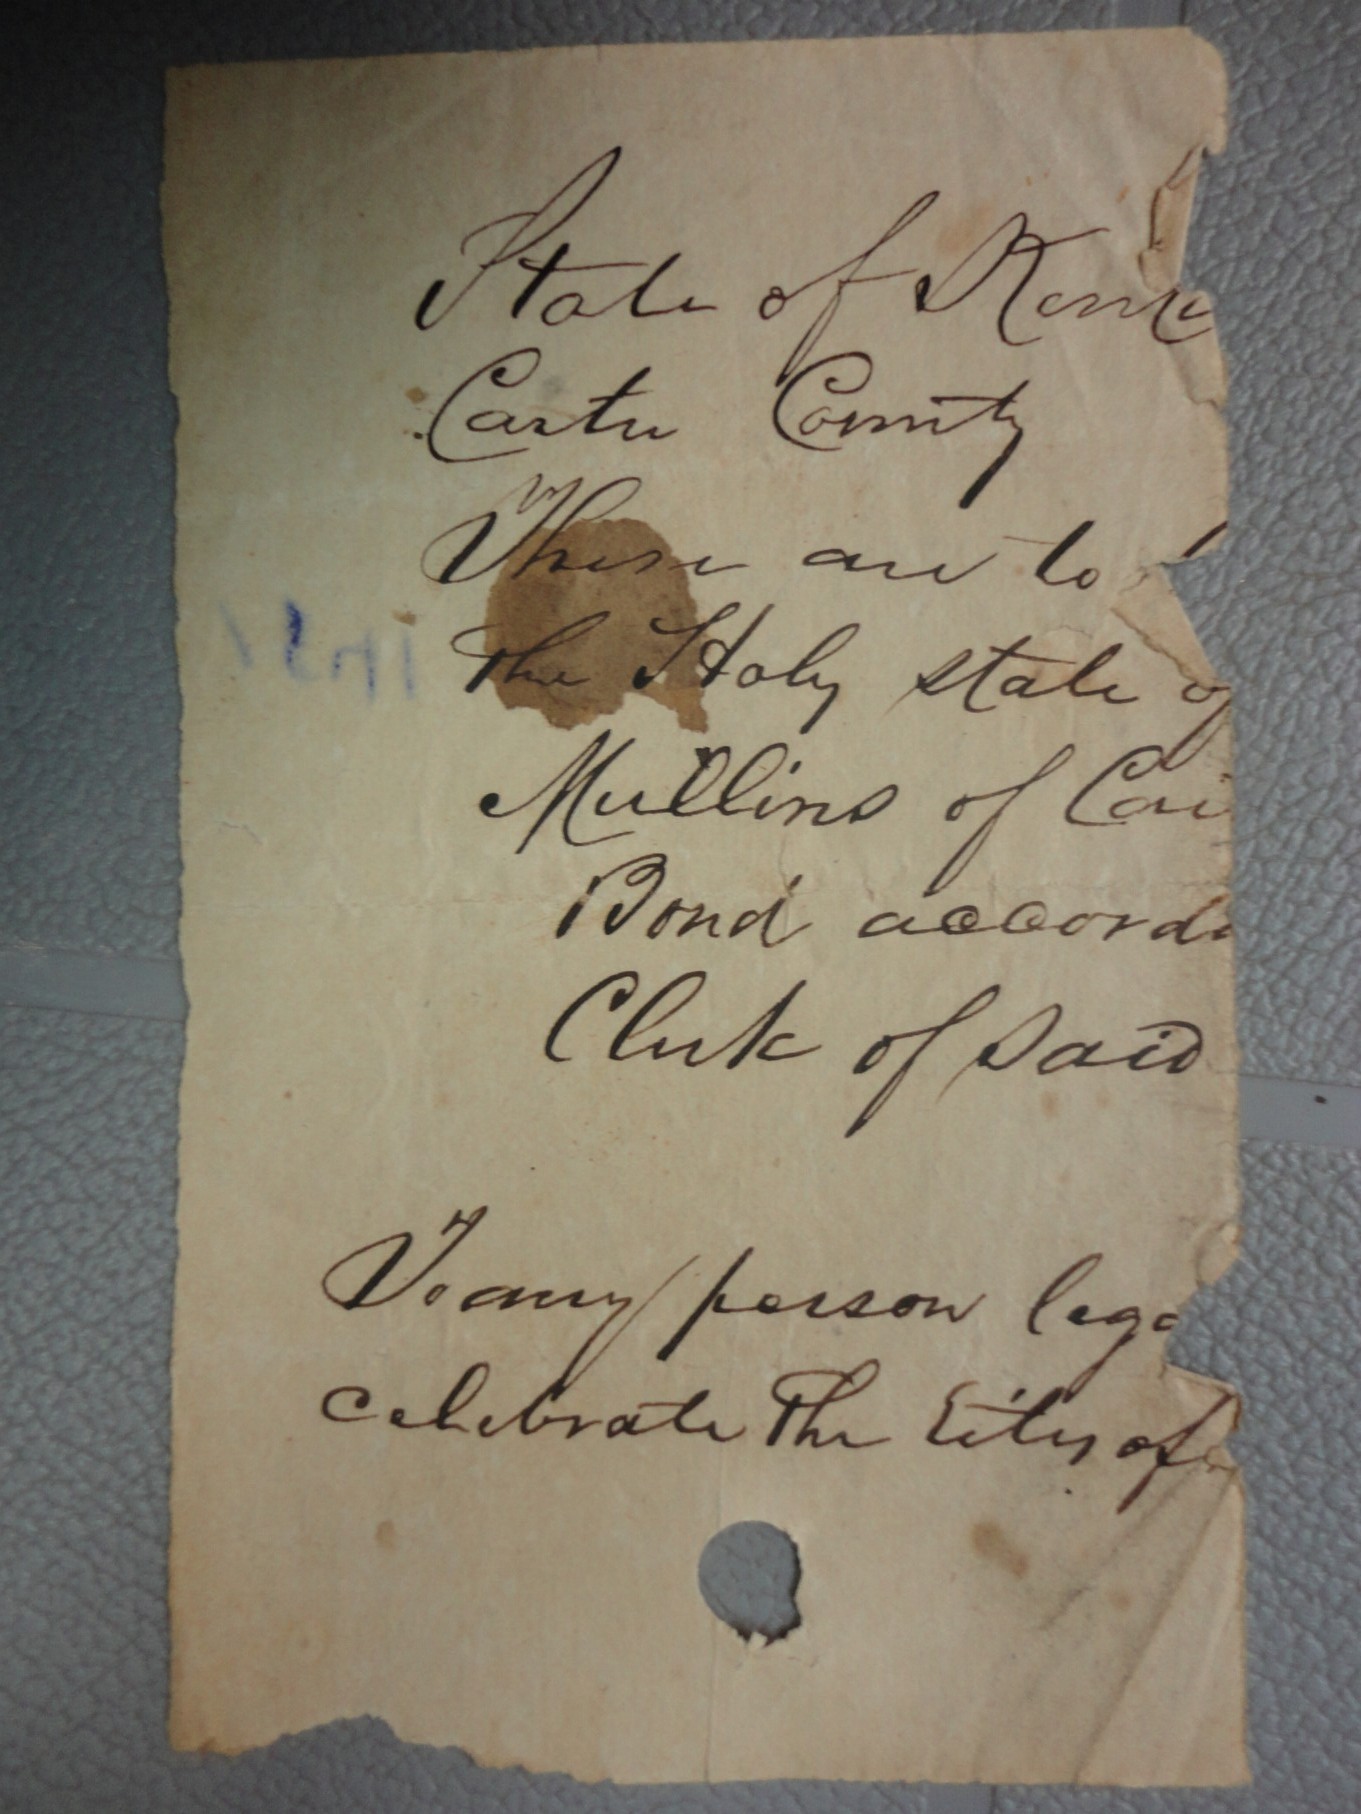 State of Kentu
Carter County
These are to
the Holy state of
Mullins of Car
Bond accordi
Clerk of Said
To any person lega
celebrate the rites of